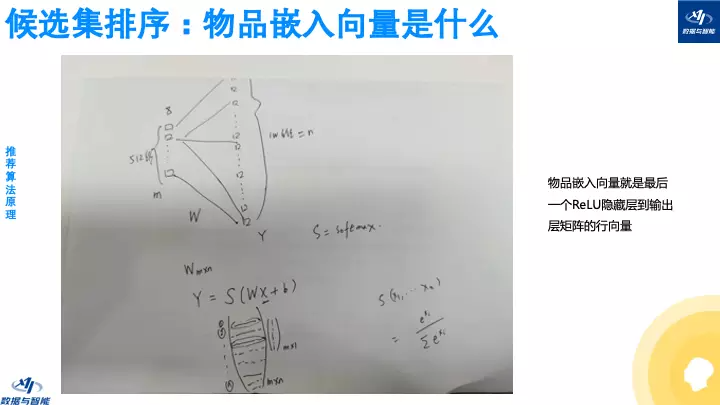 候选集排序：物品嵌入向量是什么
数据与智能
推荐算法原理
512维
m
W
Y
100维 = n
S = softmax.
W m×n
Y = S(WX + b)
S(x₁, ... xₙ)
= e^xᵢ / Σ e^xᵢ
m×1
m×n
物品嵌入向量就是最后
一个ReLU隐藏层到输出
层矩阵的行向量
数据与智能